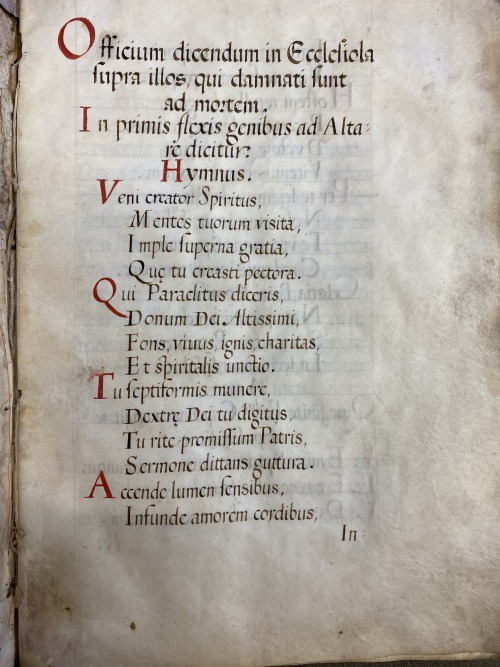 Officium dicendum in Ecclesiola
supra illos, qui damnati sunt
ad mortem.
In primis flexis genibus ad Alta-
re dicitur:
Hymnus.
Veni creator Spiritus,
Mentes tuorum visita,
Imple superna gratia,
Que tu creasti pectora.
Qui Paraclitus diceris,
Donum Dei Altissimi,
Fons, viuus, ignis, charitas,
Et spiritalis unctio.
Tu septiformis munere,
Dextrę Dei tu digitus,
Tu rite promissum Patris,
Sermone dittans guttura.
Accende lumen sensibus,
Infunde amorem cordibus,
In